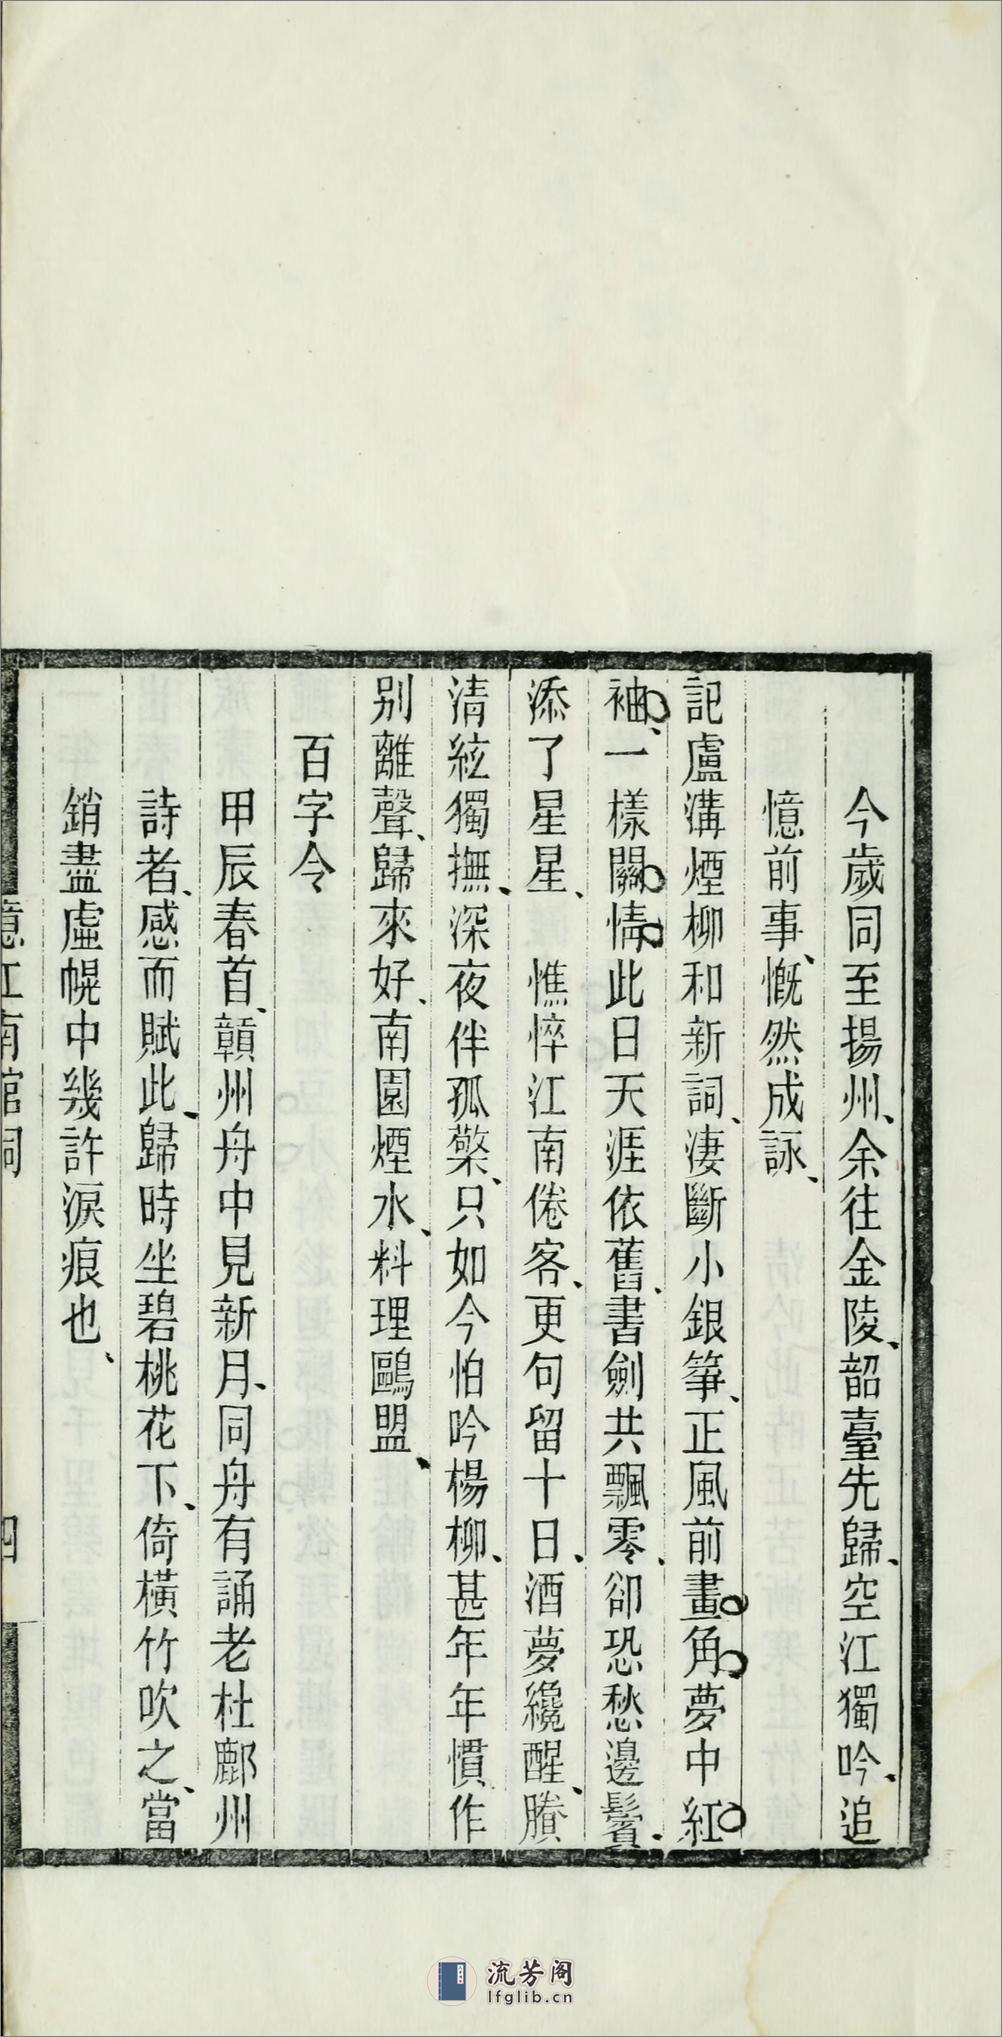 今歲同至揚州、余往金陵、韶臺先歸、空江獨吟、追
憶前事、慨然成詠、
記盧溝煙柳和新詞、淒斷小銀箏、正風前畫角、夢中紅
袖、一樣關情、此日天涯依舊、書劍共飄零、卻恐愁邊鬢、
添了星星、　憔悴江南倦客、更句留十日、酒夢纔醒、賸
清絃獨撫、深夜伴孤檠、只如今怕吟楊柳、甚年年慣作
別離聲、歸來好、南園煙水、料理鷗盟、
百字令
甲辰春首、贛州舟中見新月、同舟有誦老杜鄜州
詩者、感而賦此、歸時坐碧桃花下、倚橫竹吹之、當
銷盡虛幌中幾許淚痕也、
憶江南館詞
四
流芳阁
lfglib.cn